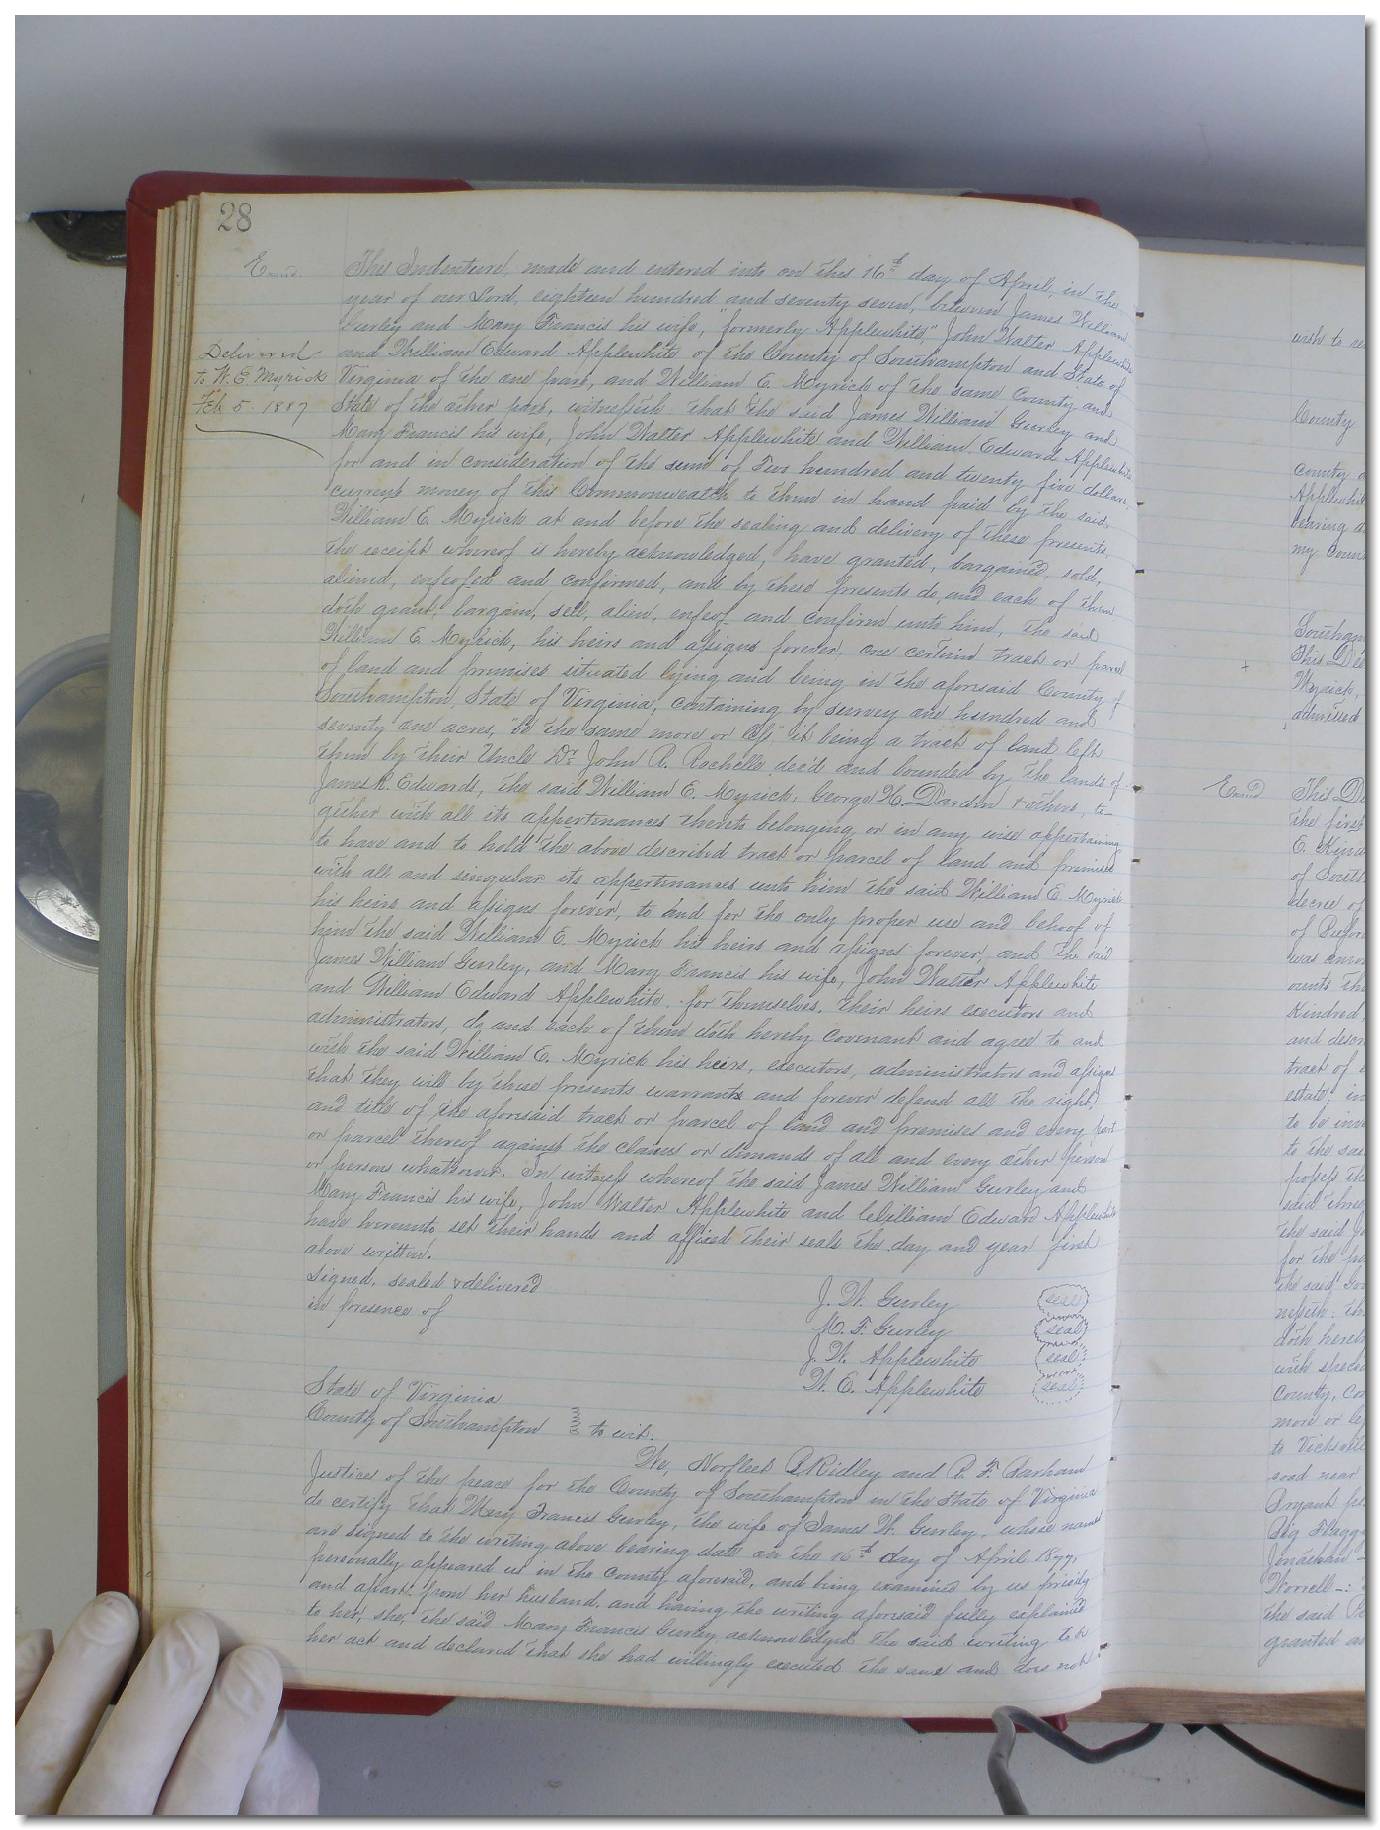 28
Exmd.
This Indenture, made and entered into on this 16th day of April, in the
year of our Lord, eighteen hundred and seventy seven, between James William
Gurley and Mary Francis his wife, "formerly Applewhite," John Walter Applewhite
and William Edward Applewhite of the County of Southampton and State of
Delivered
to W. E. Myrick
Feb 5. 1887
Virginia of the one part, and William E. Myrick of the same County and
State of the other part, witnesseth that the said James William Gurley and
Mary Francis his wife, John Walter Applewhite and William Edward Applewhite
for and in consideration of the sum of Two hundred and twenty five dollars,
current money of this Commonwealth to them in hand paid by the said,
William E. Myrick at and before the sealing and delivery of these presents,
the receipt whereof is hereby acknowledged, have granted, bargained, sold,
aliened, enfeofed and confirmed, and by these presents do, and each of them
doth grant, bargain, sell, alien, enfeof and confirm unto him, the said
William E. Myrick, his heirs and assigns forever, one certain track or parcel
of land and premises situated lying and being in the aforesaid County of
Southampton, State of Virginia, containing by survey one hundred and
seventy one acres, "be the same more or less" it being a track of land left
them by their Uncle Dr. John R. Rochelle dec'd and bounded by the lands of
James R. Edwards, the said William E. Myrick, George H. Darden & others, to-
gether with all its appertenances thereto belonging, or in any wise appertaining
to have and to hold the above described track or parcel of land and premises
with all and singular its appertenances unto him the said William E. Myrick
his heirs and assigns forever, to and for the only proper use and behoof of
him the said William E. Myrick his heirs and assigns forever, and the said
James William Gurley, and Mary Francis his wife, John Walter Applewhite
and William Edward Applewhite, for themselves, their heirs executors and
administrators, do and each of them doth hereby covenant and agree to and
with the said William E. Myrick his heirs, executors, administrators and assigns
that they will by these presents warrant and forever defend all the right,
and title of the aforesaid track or parcel of land and premises and every part
or parcel thereof against the claims or demands of all and every other person
or persons whatsoever. In witness whereof the said James William Gurley and
Mary Francis his wife, John Walter Applewhite and William Edward Applewhite
have hereunto set their hands and affixed their seals the day and year first
above written.
Signed, sealed & delivered
in presence of
J. W. Gurley seal
M. F. Gurley seal
J. W. Applewhite seal
W. E. Applewhite seal
State of Virginia
County of Southampton to wit.
We, Norfleet Ridley and Parham
Justices of the peace for the County of Southampton in the State of Virginia
do certify that Mary Francis Gurley, the wife of James W. Gurley, whose names
are signed to the writing above bearing date on the 16th day of April 1877,
personally appeared us in the County aforesaid, and being examined by us privily
and apart from her husband, and having the writing aforesaid fully explained
to her, she, the said Mary Francis Gurley acknowledged the said writing to be
her act and declared that she had willingly executed the same and does not
wish to
County
county
bearing
my
This
Myrick,
admitted
Exmd
This
the first
decree of
of
was
Kindred
and
tract of
estate, in
to be
to the
said
the said
for the
the said
doth
with
County,
more or
to
road near
Jonathan
Worrell
the said
granted